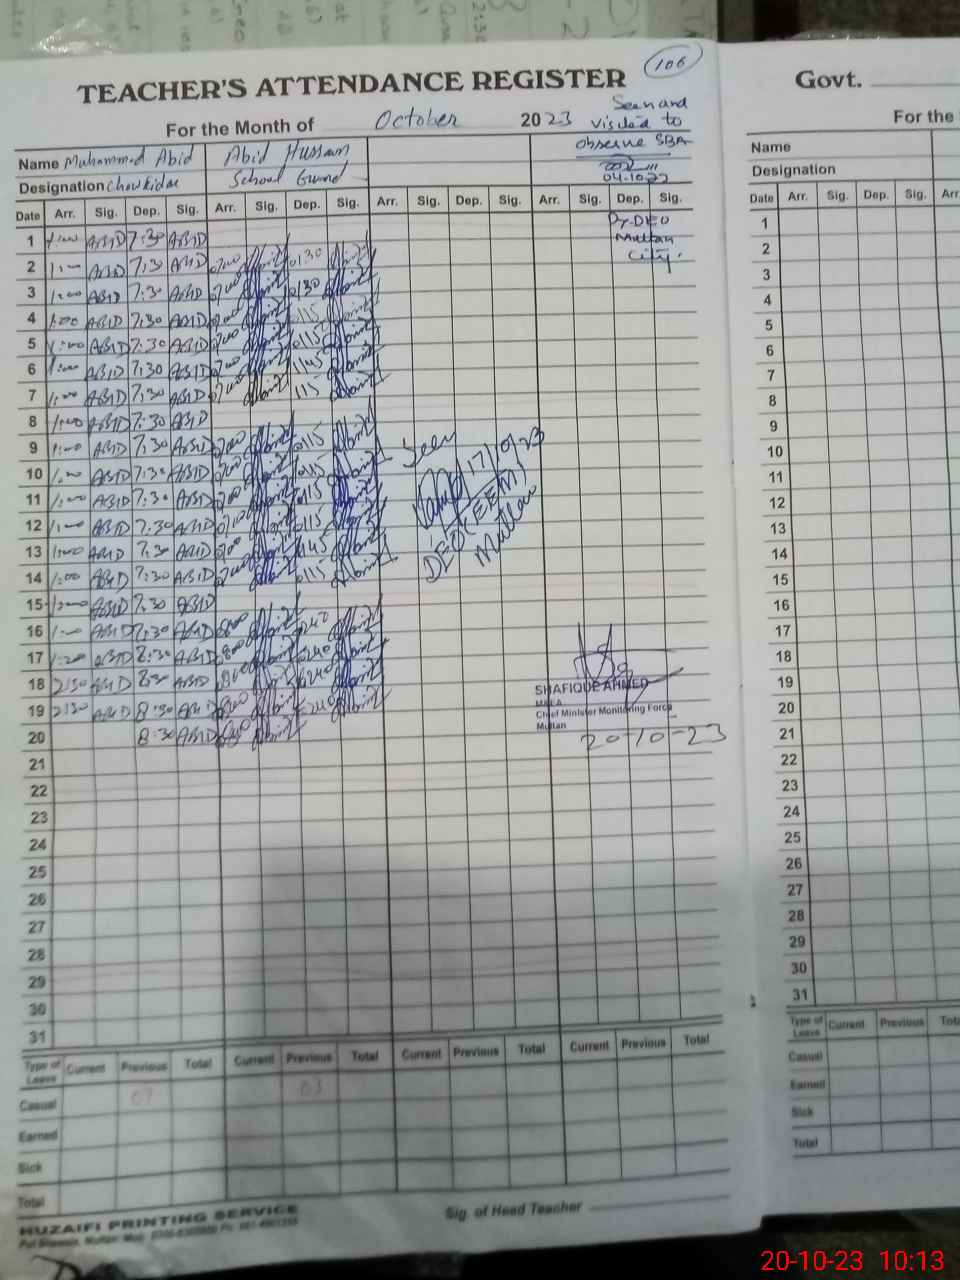 106
TEACHER'S ATTENDANCE REGISTER
For the Month of October 2023
Seen and
visited to
observe SBA
04-10-23
Dy. DEO
Multan
City.
Name Muhammad Abid Abid Hussain
Designation Chowkidar School Guard
Date Arr. Sig. Dep. Sig. Arr. Sig. Dep. Sig. Arr. Sig. Dep. Sig. Arr. Sig. Dep. Sig.
1 1:00 ABID 7:30 ABID
2 1:00 ABID 7:30 ABID 0700 0130
3 1:00 ABID 7:30 ABID 0700 0130
4 1:00 ABID 7:30 ABID 0700 0115
5 1:00 ABID 7:30 ABID 0700 0115
6 1:00 ABID 7:30 ABID 0700 1145
7 1:00 ABID 7:30 ABID 0700 115
8 1:00 ABID 7:30 ABID
9 1:00 ABID 7:30 ABID 0700 0115
10 1:00 ABID 7:30 ABID 0700 0115
11 1:00 ABID 7:30 ABID 0700 0115
12 1:00 ABID 7:30 ABID 0700 0115
13 1:00 ABID 7:30 ABID 0700
14 1:00 ABID 7:30 ABID 0700 0115
15 ABID 7:30 ABID
16 1:00 ABID 7:30 ABID 0800 0240
17 ABID 8:30 ABID 0800 0240
18 2:30 ABID 8:30 ABID 0800 0240
19 2:30 ABID 8:30 ABID 0240
20 8:30 ABID
21
22
23
24
25
26
27
28
29
30
31
Seen
17/10/23
DEO (EE M)
Multan
SHAFIQUE AHMED
MEA
Chief Minister Monitoring Force
Multan
20-10-23
Type of Leave Current Previous Total Current Previous Total Current Previous Total Current Previous Total
Casual 07 03
Earned
Sick
Total
HUZAIFI PRINTING SERVICE
Sig. of Head Teacher
Govt.
For the
Name
Designation
Date Arr. Sig. Dep. Sig. Arr.
1
2
3
4
5
6
7
8
9
10
11
12
13
14
15
16
17
18
19
20
21
22
23
24
25
26
27
28
29
30
31
Type of Leave Current Previous
Casual
Earned
Sick
Total
20-10-23 10:13